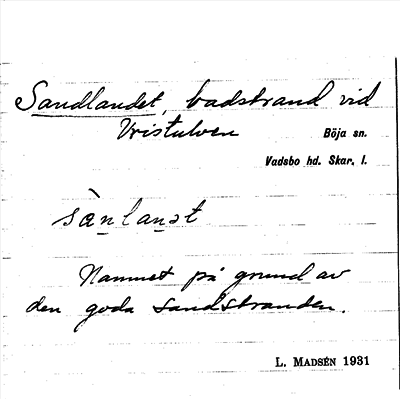 Sandlandet, badstrand vid
Vristulven
Böja sn.
Vadsbo hd. Skar. l.
sànlanət
Namnet på grund av
den goda sandstranden.
L. MADSÉN 1931